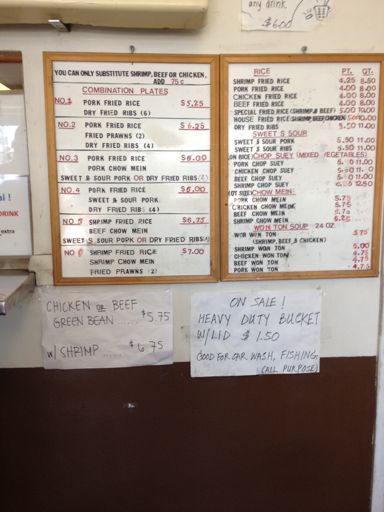 any drink.
$6.00
YOU CAN ONLY SUBSTITUTE SHRIMP, BEEF OR CHICKEN,
ADD 75¢
COMBINATION PLATES
NO.1 PORK FRIED RICE $5.25
DRY FRIED RIBS (6)
NO.2 PORK FRIED RICE $6.25
FRIED PRAWNS (2)
DRY FRIED RIBS (4)
NO.3 PORK FRIED RICE $6.00
PORK CHOW MEIN
SWEET & SOUR PORK OR DRY FRIED RIBS
NO.4 PORK FRIED RICE $6.00
SWEET & SOUR PORK
DRY FRIED RIBS (4)
NO.5 SHRIMP FRIED RICE $6.75
BEEF CHOW MEIN
SWEET & SOUR PORK OR DRY FRIED RIBS
NO SHRIMP FRIED RICE $7.00
SHRIMP CHOW MEIN
FRIED PRAWNS (2)
RICE PT. QT.
SHRIMP FRIED RICE 4.25 8.50
PORK FRIED RICE 4.00 8.00
CHICKEN FRIED RICE 4.00 8.00
BEEF FRIED RICE 4.00 8.00
SPECIAL FRIED RICE (SHRIMP & BEEF) 5.00 10.00
HOUSE FRIED RICE (SHRIMP BEEF CHICKEN) 10.00
DRY FRIED RIBS 5.50 11.00
SWEET & SOUR
SWEET & SOUR PORK 5.50 11.00
SWEET & SOUR RIBS 5.50 11.00
ON RICE) CHOP SUEY (MIXED VEGETABLES)
PORK CHOP SUEY 11.00
CHICKEN CHOP SUEY 11.00
BEEF CHOP SUEY 11.00
SHRIMP CHOP SUEY 12.50
CHOW MEIN
PORK CHOW MEIN 5.75
CHICKEN CHOW MEIN 5.75
BEEF CHOW MEIN
SHRIMP CHOW MEIN
WON TON SOUP 24 OZ
WOR WON TON
(SHRIMP, BEEF & CHICKEN)
SHRIMP WON TON 5.00
CHICKEN WON TON 4.75
BEEF WON TON 4.75
PORK WON TON 4.75
DRINK
extra
CHICKEN OR BEEF
GREEN BEAN ...... $5.75
W/ SHRIMP ...... $6.75
ON SALE!
HEAVY DUTY BUCKET
W/LID $1.50
GOOD FOR CAR WASH, FISHING,
(ALL PURPOSE)